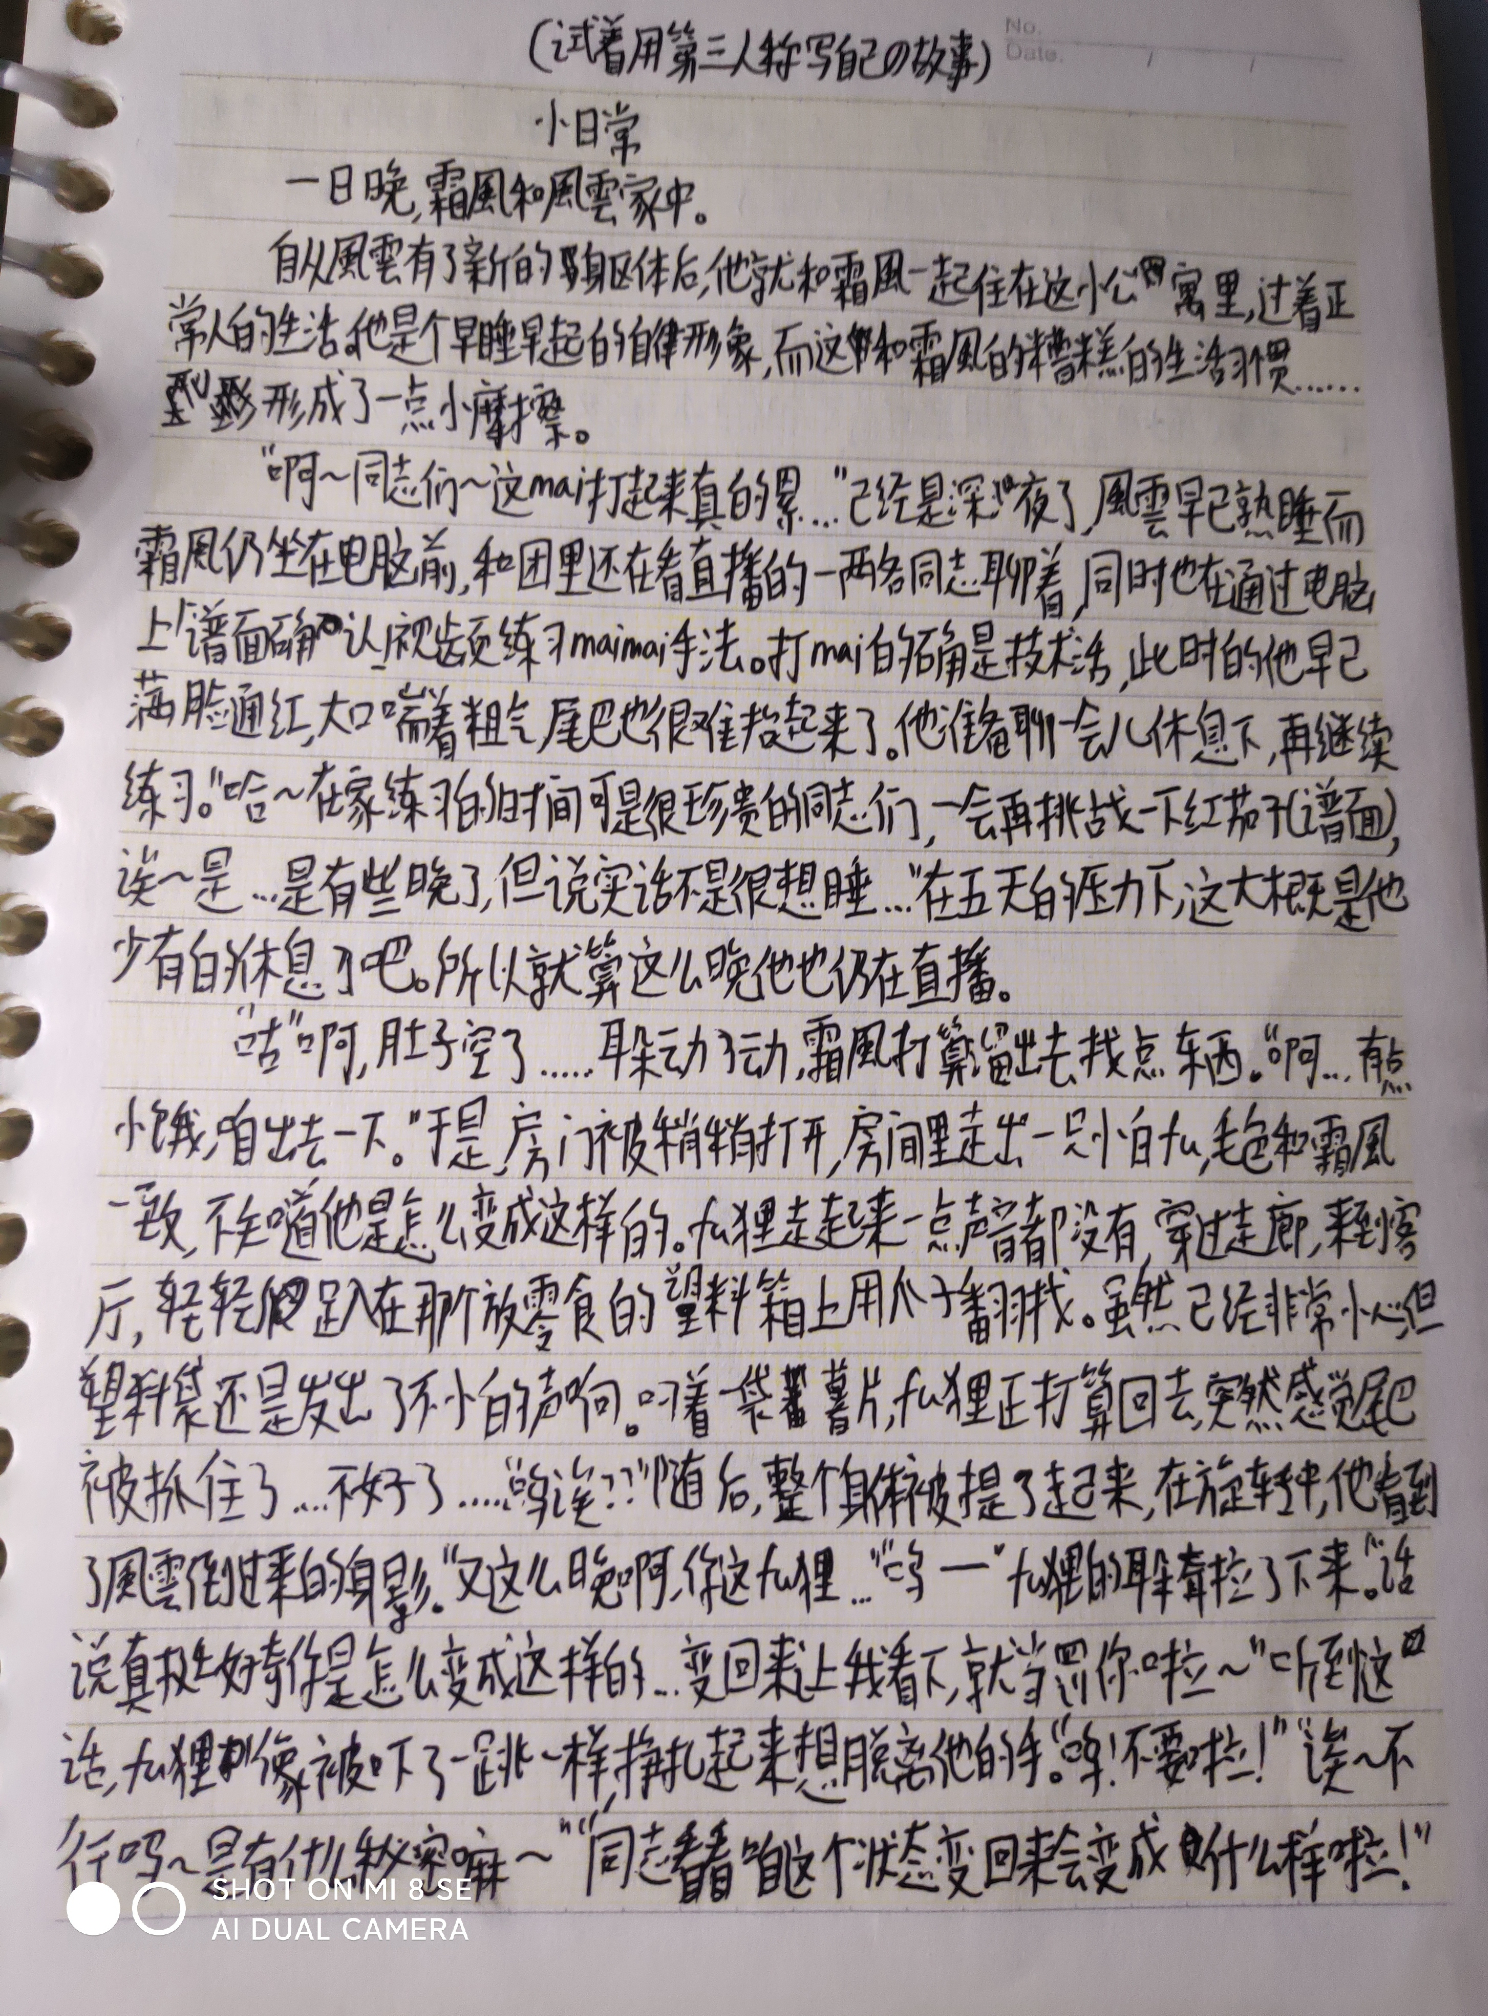 No.
Date.
(试着用第三人称写自己の故事)
小日常
一日晚,霜風和風雲家中。
自从風雲有了新的躯体后,他就和霜風一起住在这小公寓里,过着正
常人的生活。他是个早睡早起的自律形象,而这和霜風的糟糕的生活习惯……
形成了一点小摩擦。
“啊~同志们~这mai打起来真的累…”已经是深夜了,風雲早已熟睡而
霜風仍坐在电脑前,和团里还在看直播的一两名同志聊着,同时也在通过电脑
上「谱面确认」视频练习maimai手法。打mai的确是技术活,此时的他早已
满脸通红,大口喘着粗气,尾巴也很难抬起来了。他准备聊一会儿休息下,再继续
练习。“哈~在家练习的时间可是很珍贵的同志们,一会再挑战一下红茄子(谱面),
诶~是…是有些晚了,但说实话不是很想睡…”在五天的压力下,这大概是他
少有的休息了吧。所以就算这么晚他也仍在直播。
“咕”啊,肚子空了……耳朵动了动,霜風打算溜出去找点东西。“啊…有点
小饿,咱出去一下。”于是,房门被稍稍打开,房间里走出一只小白fu,毛色和霜風
一致,不知道他是怎么变成这样的。fu狸走起来一点声音都没有,穿过走廊,来到客
厅,轻轻趴在那个放零食的塑料箱上用爪子翻找。虽然已经非常小心,但
塑料袋还是发出了不小的声响。叼着一袋薯片,fu狸正打算回去,突然感觉尾巴
被抓住了….不好了……“呜诶??”随后,整个身体被提了起来,在旋转中,他看到
了風雲倒过来的身影。“又这么晚啊,你这fu狸…”“呜——”fu狸的耳朵耷拉了下来。“话
说真挺好奇你是怎么变成这样的…变回来让我看下,就当罚你啦~”听到这
话,fu狸像被吓了一跳一样,挣扎起来想脱离他的手。“呜!不要啦!”“诶~不
行吗~是有什么秘密嘛~”“同志看看咱这个状态变回来会变成什么样啦!”
SHOT ON MI 8 SE
AI DUAL CAMERA